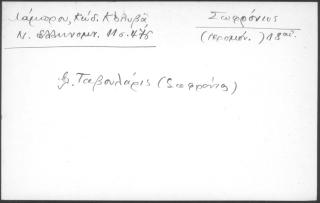 Λάμπρου, Κώδ. Κολυβᾶ
Ν. Ἑλληνομν. 11 σ. 475
Σωφρόνιος
(ἱερομόν.) 18 αἰ.
βλ. Ταβουλάρις (Σωφρόνιος)